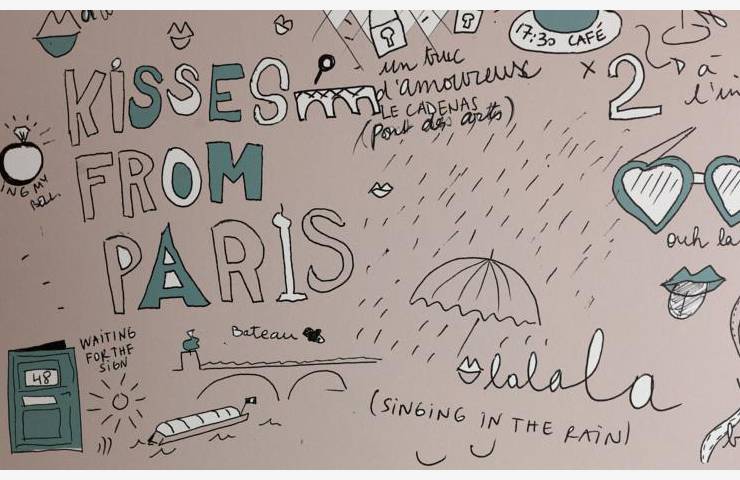 17:30 CAFÉ
KISSES
FROM
PARIS
un truc
d'amoureux
LE CADENAS
(Pont des arts)
x 2
à
l'in
ING MY
BELL
ouh la
WAITING
FOR THE
SIGN
48
Bateau
lalalala
(SINGING IN THE RAIN)